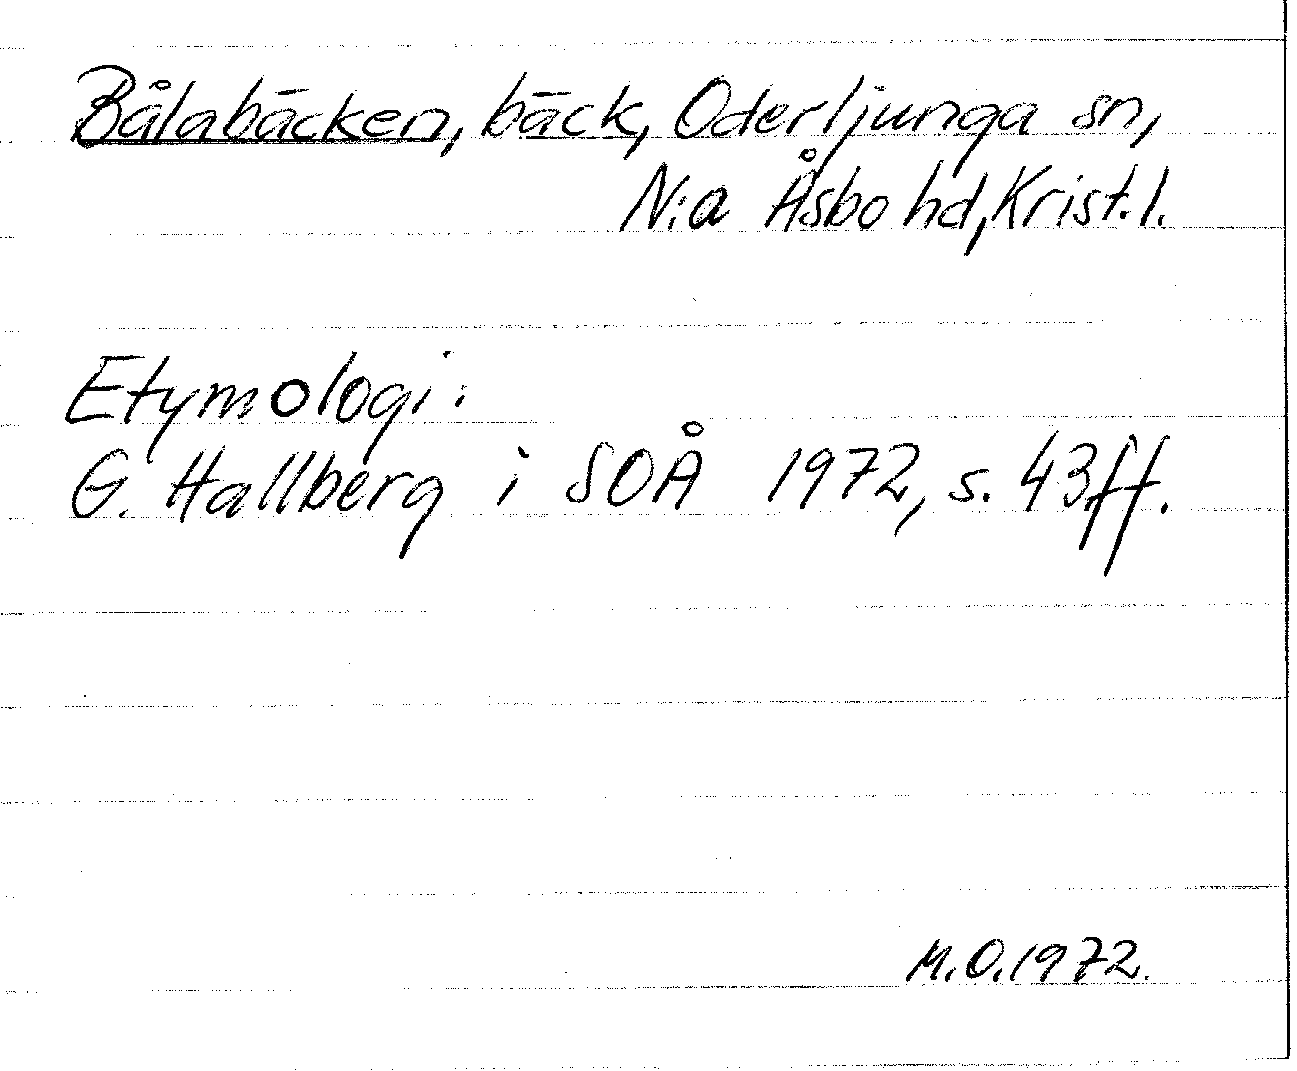 Bålabäcken, bäck, Oderljunga sn,
N:a Åsbo hd, Krist. l.
Etymologi:
G. Hallberg i SOÅ 1972, s. 43ff.
M.O. 1972.